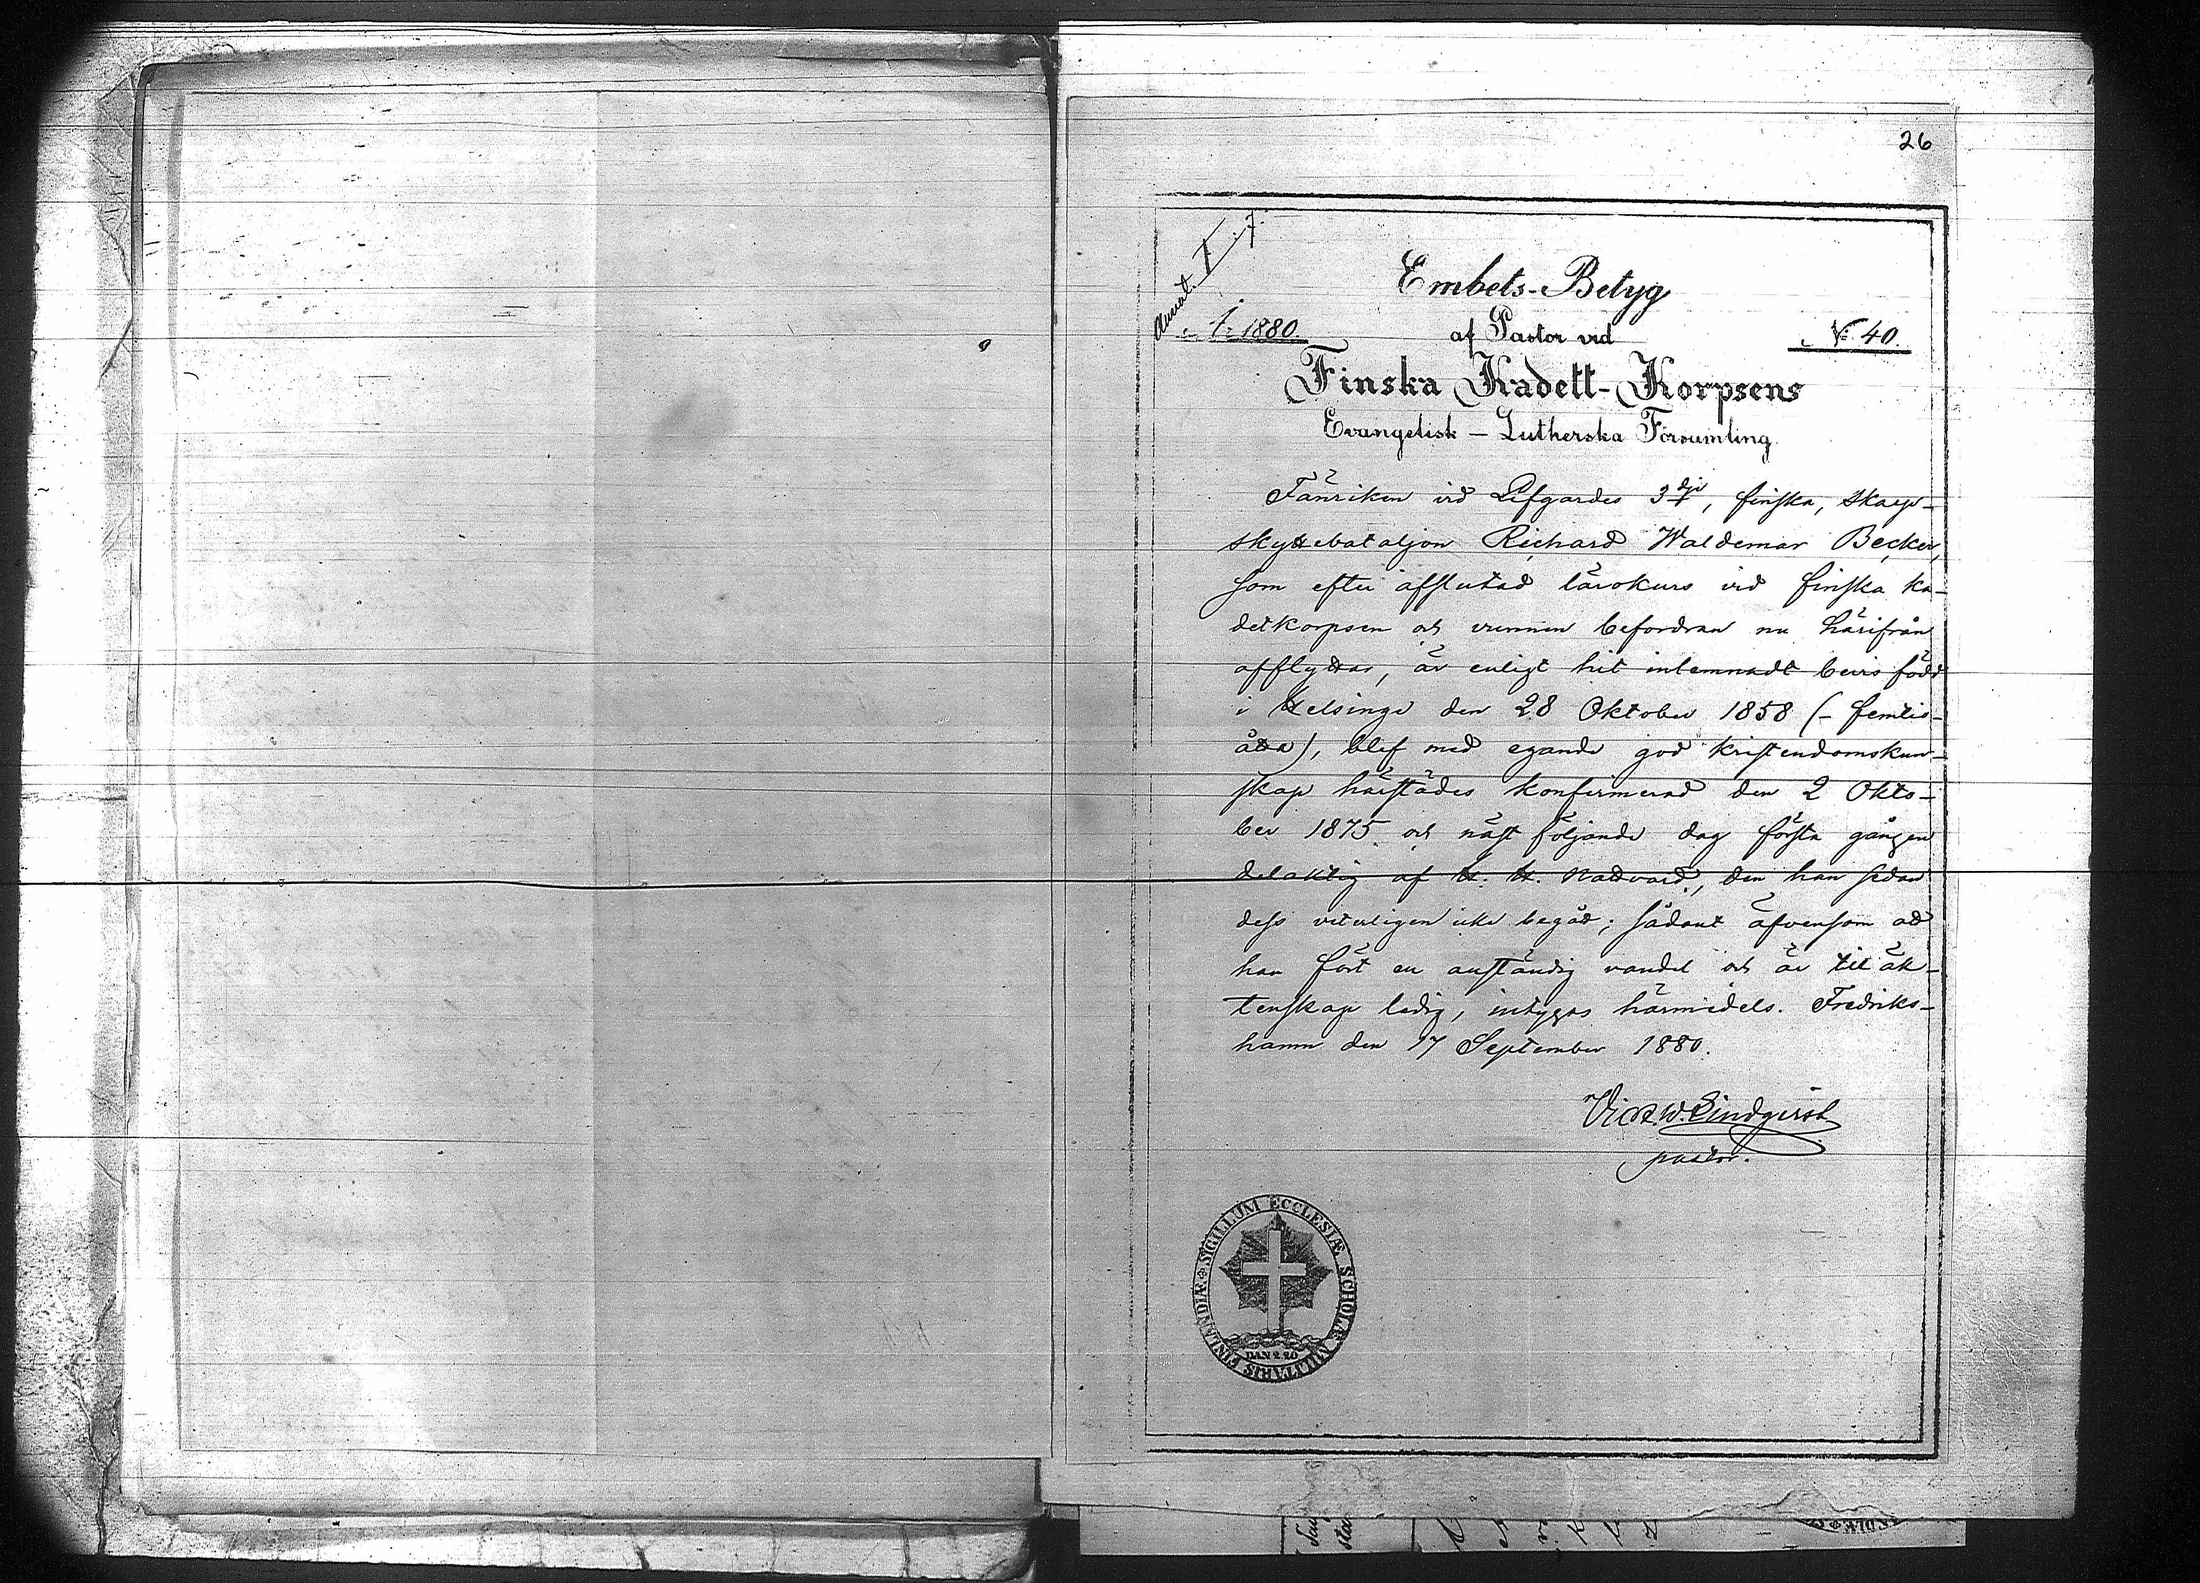 26
Embets-Betyg
1880.
af Pastor vid
N: 40.
Finska Kadett-Korpsens
Evangelisk – Lutherska Församling.
Fänriken vid Lifgardes 3dje, finska, skarp-
skyttebataljon Richard Waldemar Becker,
som efter afslutad lärokurs vid finska ka-
dettkorpsen och vunnen befordran nu härifrån
afflyttar, är enligt hit inlemnadt bevis född
i Helsinge den 28 Oktober 1858 (– femtio-
åtta), blef med egande god kristendomskun-
skap härstädes konfirmerad den 2 Okto-
ber 1875 och näst följande dag första gången
delaktig af H. H. Nattvard, den han sedan
dess veterligen icke begått; sådant äfvensom att
han fört en anständig vandel och är till äk-
tenskap ledig, intygas härmedels. Fredriks-
hamn den 17 September 1880.
Vict. W. Lindqvist
pastor.
SIGILLUM ECCLESIÆ SCHOLÆ MILITARIS FINLANDIÆ
DAN 2.20